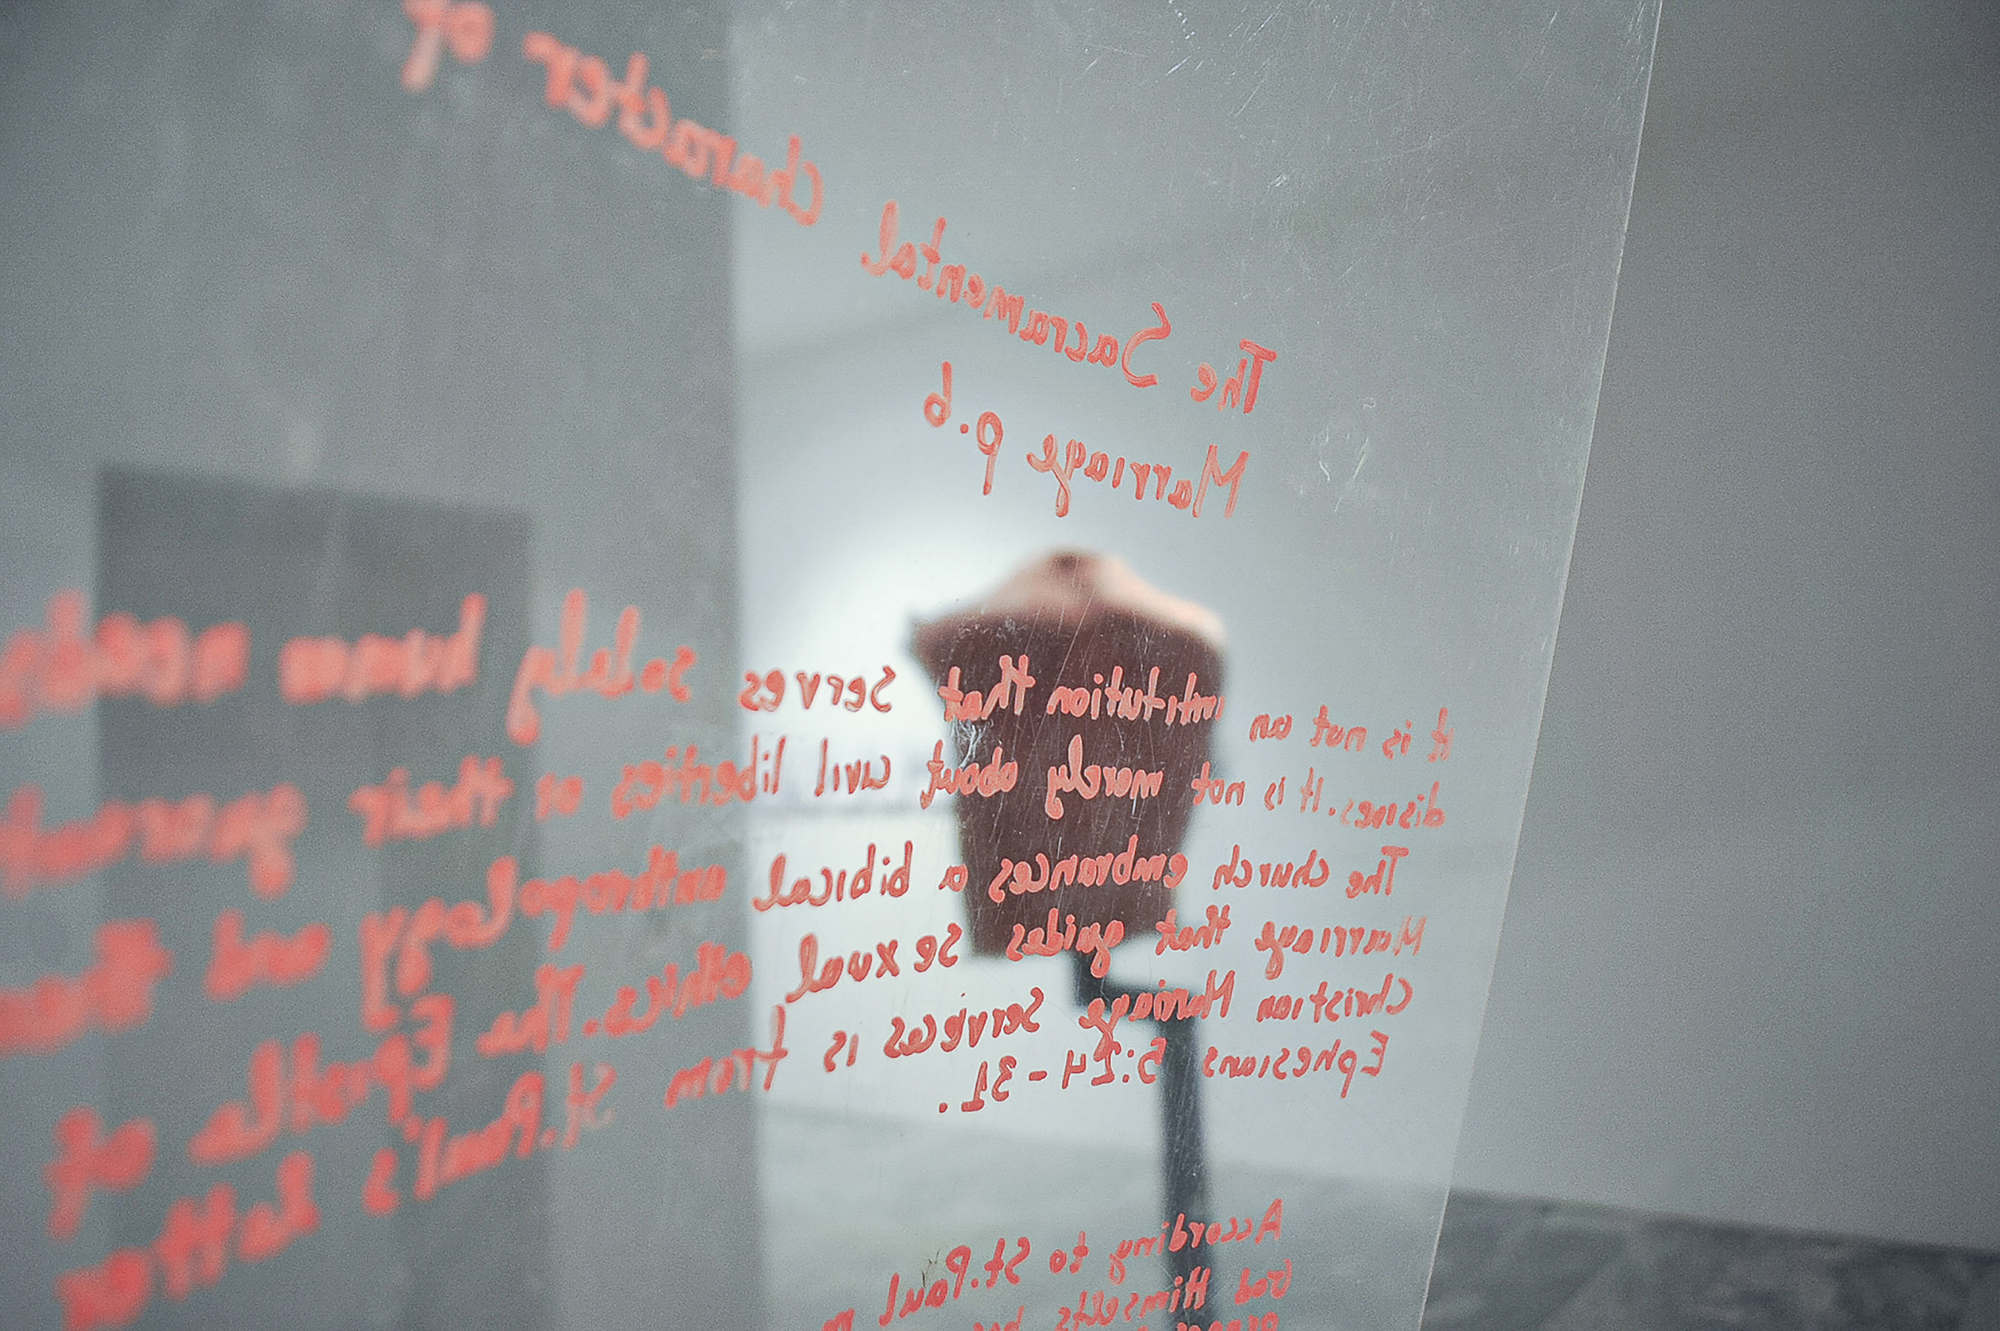 The Sacramental Character of
Marriage p.6
It is not an intitution that serves solely human needs
disires. It is not merely about civil liberties or their guarant
The church embrances a bibical anthropology and
Marriage that guides sexual ethics. The Epistle of
Christian Marriage Services is from St. Paul's letter
Ephesians 5:24-31.
According to St. Paul
God Himselts